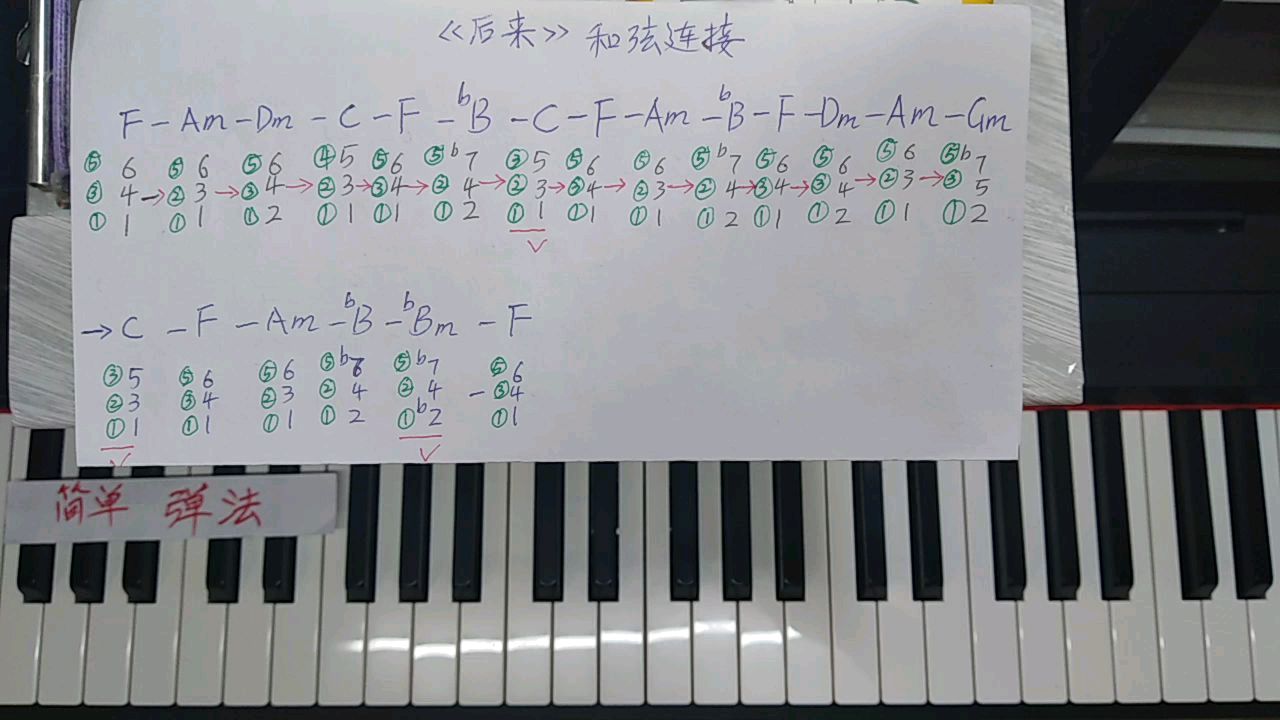 《后来》 和弦连接
F – Am – Dm – C – F – ᵇB – C – F – Am – ᵇB – F – Dm – Am – Gm
⑤ 6 ⑤ 6 ⑤ 6 ④ 5 ⑤ 6 ⑤ ᵇ7 ③ 5 ⑤ 6 ⑤ 6 ⑤ ᵇ7 ⑤ 6 ⑤ 6 ⑤ 6 ⑤ ᵇ7
③ 4 → ② 3 → ③ 4 → ② 3 → ③ 4 → ② 4 → ② 3 → ③ 4 → ② 3 → ② 4 → ③ 4 → ③ 4 → ② 3 → ③ 5
① 1 ① 1 ① 2 ① 1 ① 1 ① 2 ① 1 ① 1 ① 1 ① 2 ① 1 ① 2 ① 1 ① 2
→ C – F – Am – ᵇB – ᵇBm – F
③ 5 ⑤ 6 ⑤ 6 ⑤ ᵇ7 ⑤ ᵇ7 ⑤ 6
② 3 ③ 4 ② 3 ② 4 ② 4 – ③ 4
① 1 ① 1 ① 1 ① 2 ① ᵇ2 ① 1
简单 弹法